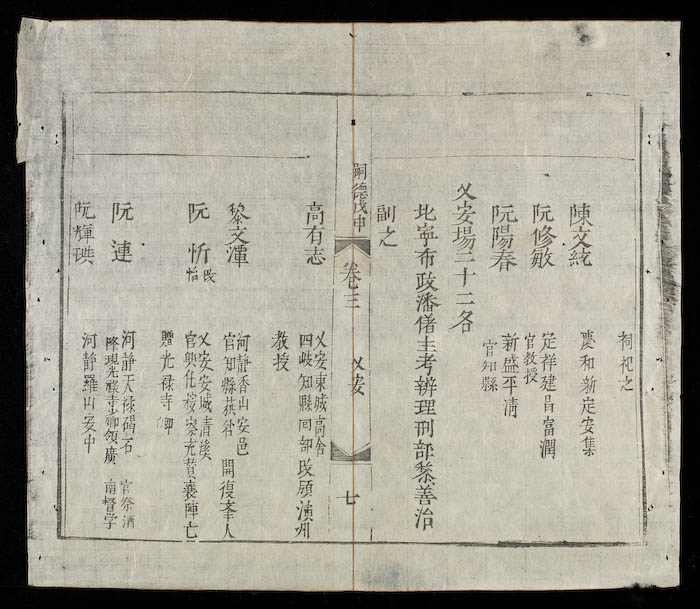 祠祀之
陳文紘
慶和新定安集
阮修敏
定祥建昌富潤
官教授
阮陽春
新盛平凊
官知縣
乂安場二十二名
北寧布政潘偖主考辨理刑部黎善治
副之
嗣德戊申 卷三 乂安 七
高有志
乂安東城高舍
四岐知縣回部改領演州
教授
黎文渾
河靜香山安邑
官知縣 開復峯人
阮忻 改怡
乂安安城清溪
官興化按察充贊襄陣亡
贈光禄寺卿
阮連
河靜天禄碣石 官祭酒
降現光禄寺少卿領廣南督学
阮輝
河靜羅山安中